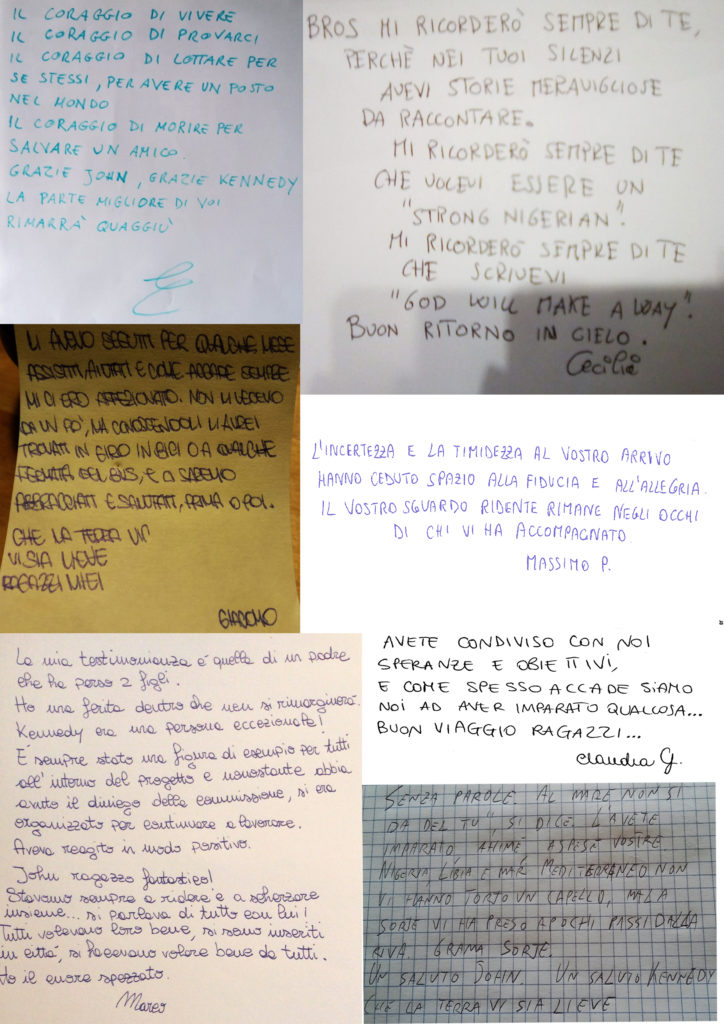 IL CORAGGIO DI VIVERE
IL CORAGGIO DI PROVARCI
IL CORAGGIO DI LOTTARE PER
SE STESSI, PER AVERE UN POSTO
NEL MONDO
IL CORAGGIO DI MORIRE PER
SALVARE UN AMICO.
GRAZIE JOHN, GRAZIE KENNEDY
LA PARTE MIGLIORE DI VOI
RIMARRÀ QUAGGIÙ
BROS MI RICORDERÒ SEMPRE DI TE,
PERCHÈ NEI TUOI SILENZI
AVEVI STORIE MERAVIGLIOSE
DA RACCONTARE.
MI RICORDERÒ SEMPRE DI TE
CHE VOLEVI ESSERE UN
"STRONG NIGERIAN".
MI RICORDERÒ SEMPRE DI TE
CHE SCRIVEVI
"GOD WILL MAKE A WAY".
BUON RITORNO IN CIELO.
Cecilia
LI AVEVO SEGUITI PER QUALCHE MESE
ASSISTITI, AIUTATI E COME ACCADE SEMPRE
MI CI ERO AFFEZIONATO. NON LI VEDEVO
DA UN PO', MA CONOSCENDOLI LI AVREI
TROVATI IN GIRO IN BICI O A QUALCHE
FERMATA DEL BUS, E CI SAREMMO
ABBRACCIATI E SALUTATI, PRIMA O POI.
CHE LA TERRA
VI SIA LIEVE
RAGAZZI MIEI
GIACOMO
L'INCERTEZZA E LA TIMIDEZZA AL VOSTRO ARRIVO
HANNO CEDUTO SPAZIO ALLA FIDUCIA E ALL'ALLEGRIA.
IL VOSTRO SGUARDO RIDENTE RIMANE NEGLI OCCHI
DI CHI VI HA ACCOMPAGNATO.
MASSIMO P.
La mia testimonianza è quella di un padre
che ha perso 2 figli.
Ho una ferita dentro che non si rimarginerà.
Kennedy era una persona eccezionale!
È sempre stato una figura di esempio per tutti
all'interno del progetto e nonostante abbia
avuto il diniego della commissione, si era
organizzato per continuare a lavorare.
Aveva reagito in modo positivo.
John ragazzo fantastico!
Stavamo sempre a ridere e a scherzare
insieme... si parlava di tutto con lui!
Tutti volevano loro bene, si sono inseriti
in città, si facevano volere bene da tutti.
Ho il cuore spezzato.
Marco
AVETE CONDIVISO CON NOI
SPERANZE E OBIETTIVI,
E COME SPESSO ACCADE SIAMO
NOI AD AVER IMPARATO QUALCOSA...
BUON VIAGGIO RAGAZZI...
Claudia G.
SENZA PAROLE. AL MARE NON SI
DA DEL "TU", SI DICE. L'AVETE
IMPARATO, AHIMÈ, A SPESE VOSTRE
NIGERIA, LIBIA E MAR MEDITERRANEO NON
VI HANNO TORTO UN CAPELLO, MA LA
SORTE VI HA PRESO A POCHI PASSI DALLA
RIVA. GRAMA SORTE.
UN SALUTO JOHN. UN SALUTO KENNEDY
CHE LA TERRA VI SIA LIEVE